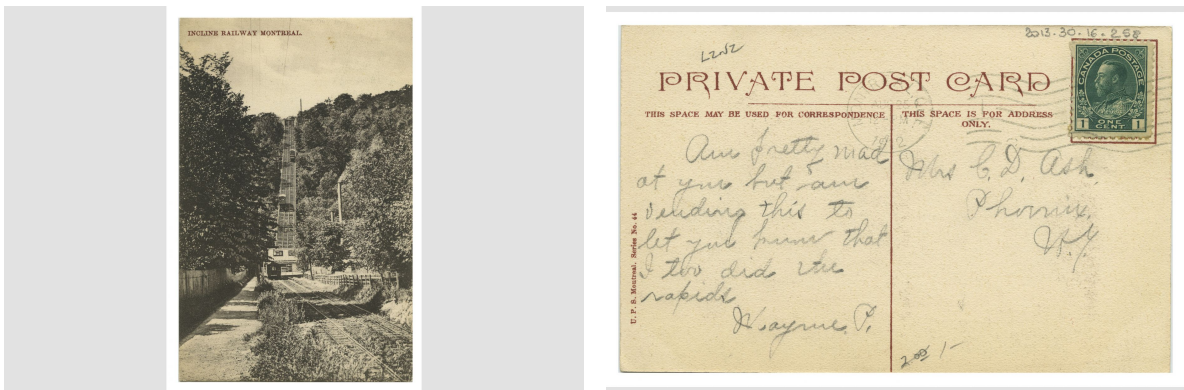 INCLINE RAILWAY MONTREAL.
2013.30.16.258
PRIVATE POST CARD
THIS SPACE MAY BE USED FOR CORRESPONDENCE
THIS SPACE IS FOR ADDRESS
ONLY.
CANADA POSTAGE
1 ONE CENT 1
Am pretty mad
at you but am
sending this to
let you know that
I too did the
rapids
Wayne P.
Mrs C. D. Ash.
Phoenix.
N.Y.
U. P. S. Montreal. Series No. 44